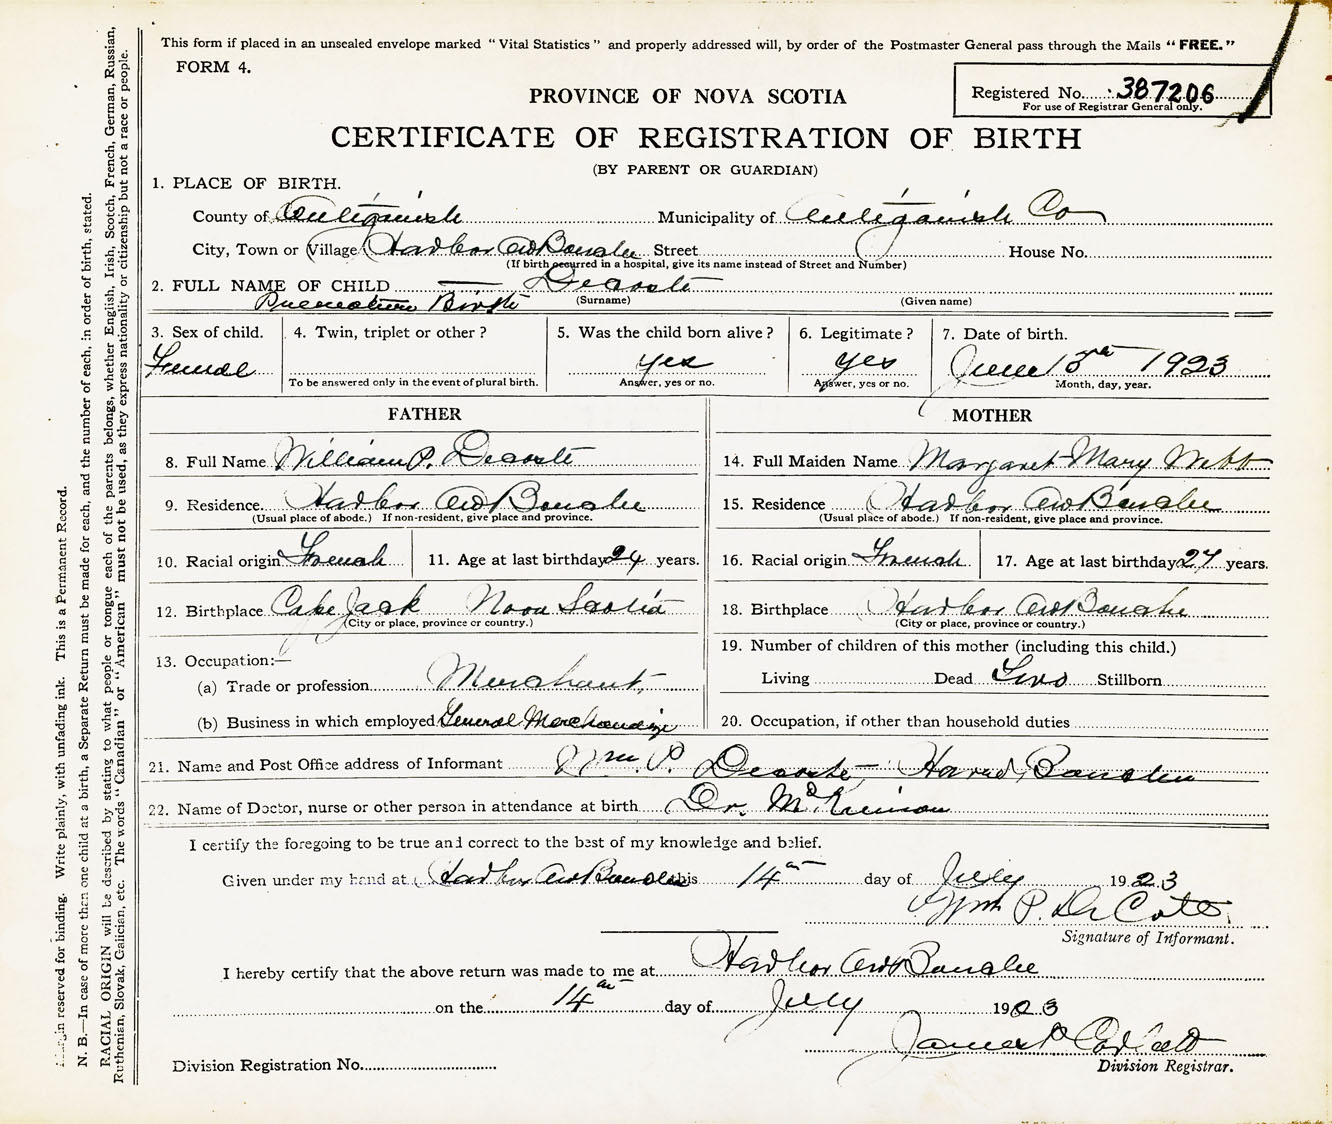 This form if placed in an unsealed envelope marked "Vital Statistics" and properly addressed will, by order of the Postmaster General pass through the Mails "FREE."
FORM 4.
Registered No. 387206
For use of Registrar General only.
PROVINCE OF NOVA SCOTIA
CERTIFICATE OF REGISTRATION OF BIRTH
(BY PARENT OR GUARDIAN)
1. PLACE OF BIRTH.
County of Antigonish Municipality of Antigonish Co
City, Town or Village Harbor Au Bouche Street House No.
(If birth occurred in a hospital, give its name instead of Street and Number)
2. FULL NAME OF CHILD — Decoste
Premature Birth (Surname) (Given name)
3. Sex of child. 4. Twin, triplet or other? 5. Was the child born alive? 6. Legitimate? 7. Date of birth.
Female yes yes June 1923
To be answered only in the event of plural birth. Answer, yes or no. Answer, yes or no. Month, day, year.
FATHER MOTHER
8. Full Name William P. Decoste 14. Full Maiden Name Margaret Mary Webb
9. Residence Harbor Au Bouche 15. Residence Harbor Au Bouche
(Usual place of abode.) If non-resident, give place and province. (Usual place of abode.) If non-resident, give place and province.
10. Racial origin French 11. Age at last birthday 24 years. 16. Racial origin French 17. Age at last birthday 27 years.
12. Birthplace Cape Jack Nova Scotia 18. Birthplace Harbor Au Bouche
(City or place, province or country.) (City or place, province or country.)
13. Occupation:— 19. Number of children of this mother (including this child.)
(a) Trade or profession Merchant, Living Dead Two Stillborn
(b) Business in which employed General Merchandize 20. Occupation, if other than household duties
21. Name and Post Office address of Informant Wm. P. Decoste, Bouche
22. Name of Doctor, nurse or other person in attendance at birth Dr. McKinnon
I certify the foregoing to be true and correct to the best of my knowledge and belief.
Given under my hand at Harbor Au Bouche this 14th day of July 1923
Wm P. De Coste
Signature of Informant.
I hereby certify that the above return was made to me at Harbor Au Bouche
on the 14th day of July 1923
James Corbett
Division Registrar.
Division Registration No.
reserved for binding. Write plainly, with unfading ink. This is a Permanent Record.
N. B.—In case of more than one child at a birth, a Separate Return must be made for each, and the number of each, in order of birth, stated.
RACIAL ORIGIN will be described by stating to what people or tongue each of the parents belongs, whether English, Irish, Scotch, French, German, Russian,
Ruthenian, Slovak, Galician, etc. The words "Canadian" or "American" must not be used, as they express nationality or citizenship but not a race or people.